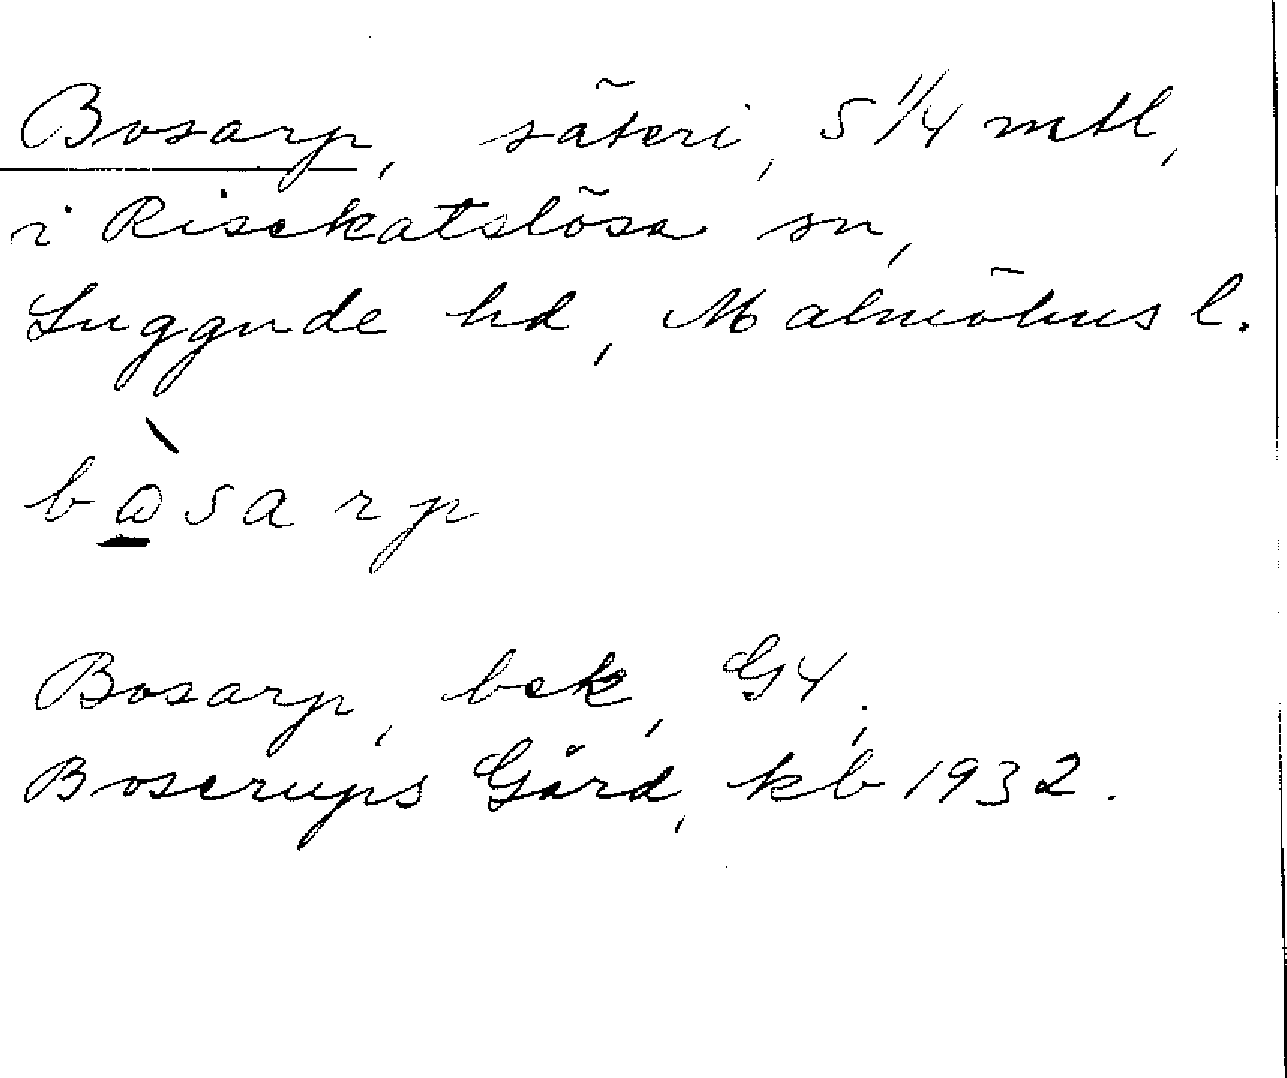 Bosarp, säteri, 5 1/4 mtl,
i Risekatslösa sn,
Luggude hd, Malmöhus l.
bò̱sarp
Bosarp, bek, G4.,
Boserups Gård, kb 1932.